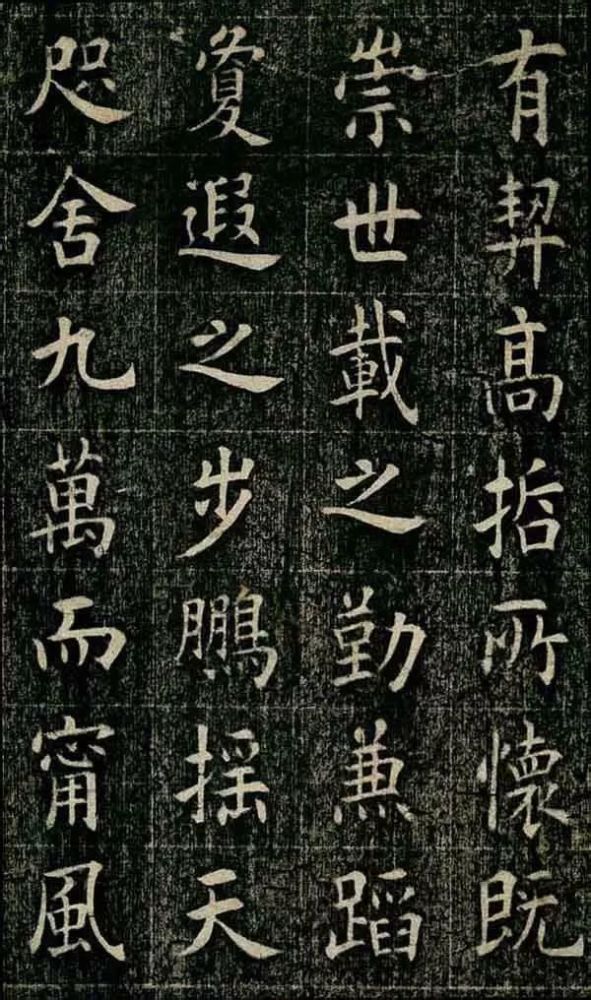 有契高哲所懷既
崇世載之勤兼蹈
夐遐之步鵬搖天
咫舍九萬而甯風